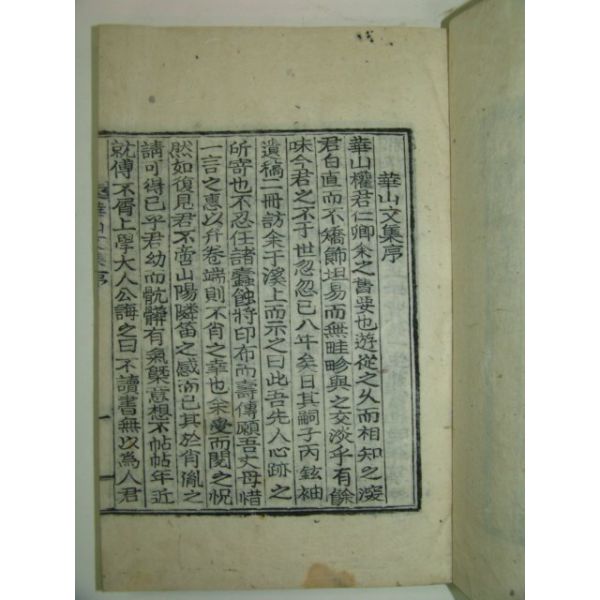 華山文集序
華山權君仁卿余之書娑也遊從之久而相知之深
君白直而不矯飾坦易而無畦畛與之交淡乎有餘
味今君之不于世忽忽已八年矣日其嗣子丙鉉袖
遺稿二冊訪余于溪上而示之曰此吾先人心跡之
所寄也不忍任諸蠹蝕將印布而壽傳願吾丈毋惜
一言之惠以弁卷端則不肖之幸也余受而閱之怳
然如復見君不啻山陽隣笛之感而已其於肖胤之
請可得已乎君幼而骯髒有氣槩意想不帖帖年近
就傅不屑上學大人公誨之曰不讀書無以爲人君
華山文集序
一